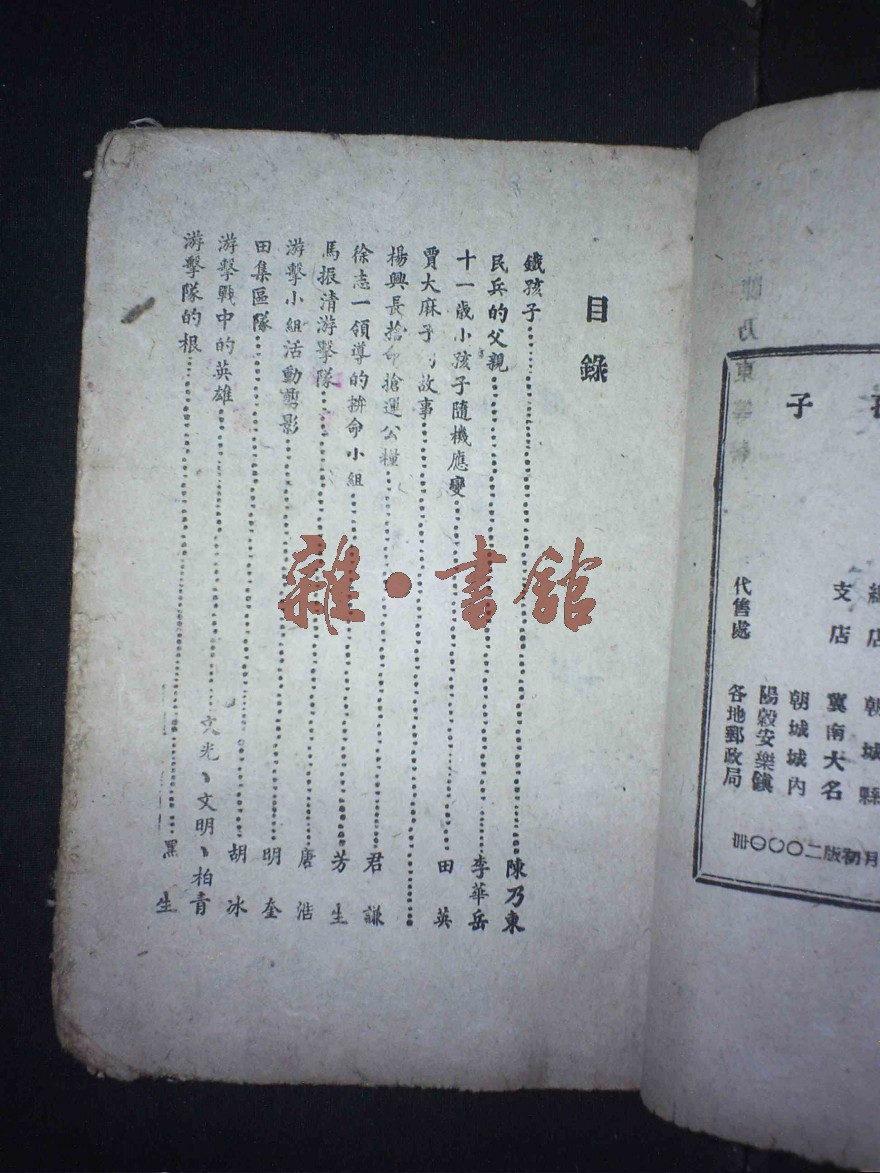 子
總店　朝城縣
支店　冀南大名
朝城城內
陽穀安樂鎮
代售處　各地郵政局
月初版二〇〇〇冊
目錄
鐵孩子……陳乃東
民兵的父親……李華岳
十一歲小孩子隨機應變……田英
賈大麻子的故事……
楊興長捨命搶運公糧……君謙
徐志一領導的拚命小組……芳生
馬振清游擊隊……唐浩
游擊小組活動剪影……明奎
田集區隊……胡冰
游擊戰中的英雄……文光、文明、柏青
游擊隊的根……黑生
雜·書館